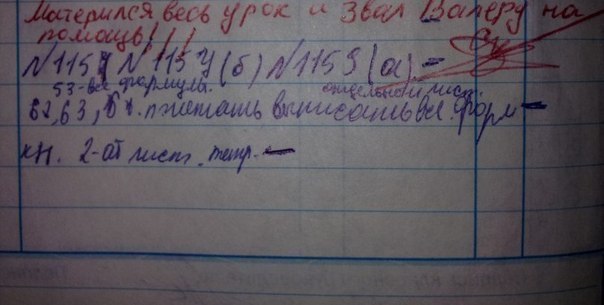 Матерился весь урок и звал Валеру на
помощь! ! !
№1157 №115 (б) №1159 (а) -
53-все формулы. отдельный лист.
62, 63, читать выписать все форм -
кн. 2-ой лист. тетр. -